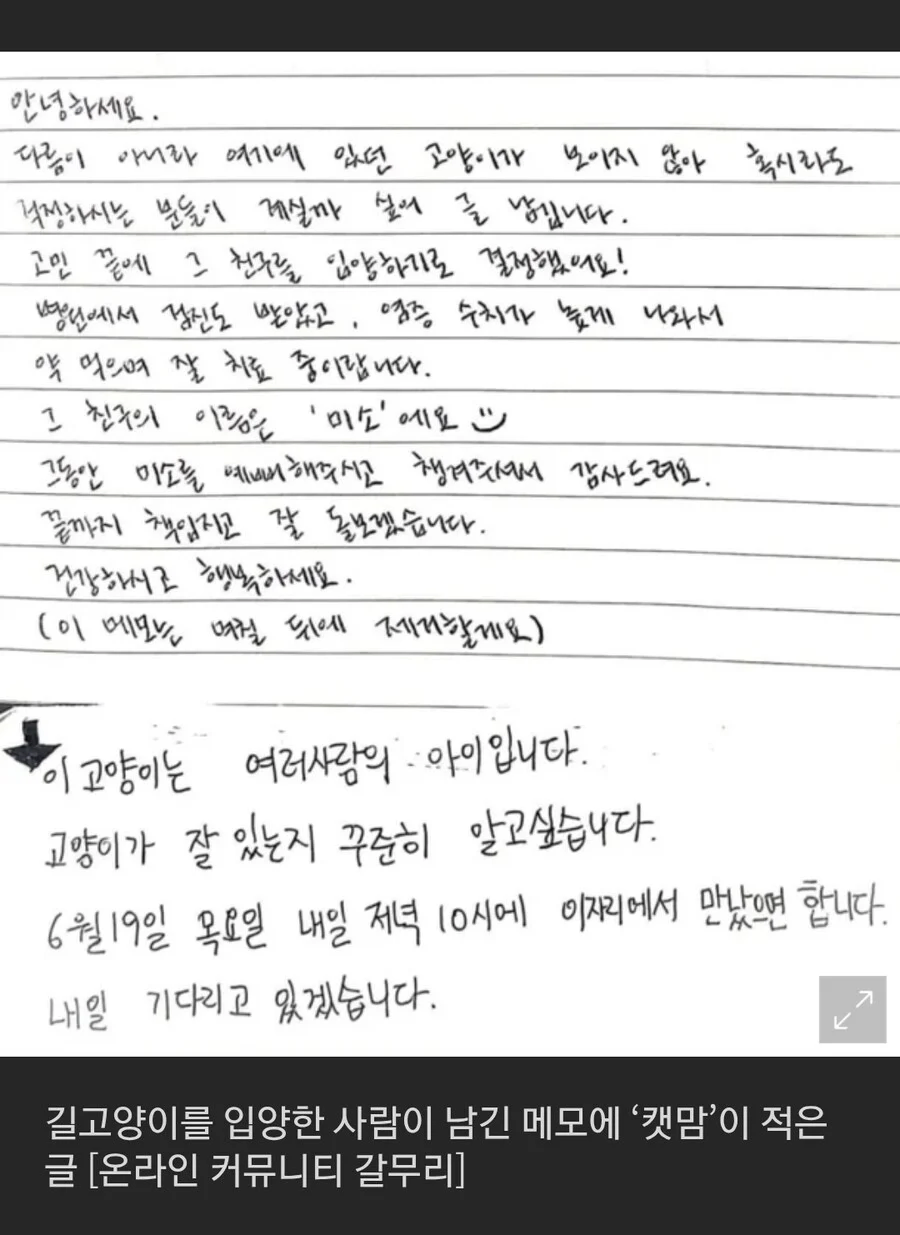 안녕하세요.
다름이 아니라 여기에 있던 고양이가 보이지 않아 혹시라도
걱정하시는 분들이 계실까 싶어 글 남깁니다.
고민 끝에 그 친구를 입양하기로 결정했어요!
병원에서 검진도 받았고, 염증 수치가 높게 나와서
약 먹으며 잘 치료 중이랍니다.
그 친구의 이름은 '미소'에요
그동안 미소를 예뻐해주시고 챙겨주셔서 감사드려요.
끝까지 책임지고 잘 돌보겠습니다.
건강하시고 행복하세요.
(이 메모는 며칠 뒤에 제거할게요)
이 고양이는 여러사람의 아이입니다.
고양이가 잘 있는지 꾸준히 알고싶습니다.
6월19일 목요일 내일 저녁 10시에 이자리에서 만났으면 합니다.
내일 기다리고 있겠습니다.
길고양이를 입양한 사람이 남긴 메모에 ‘캣맘’이 적은
글 [온라인 커뮤니티 갈무리]